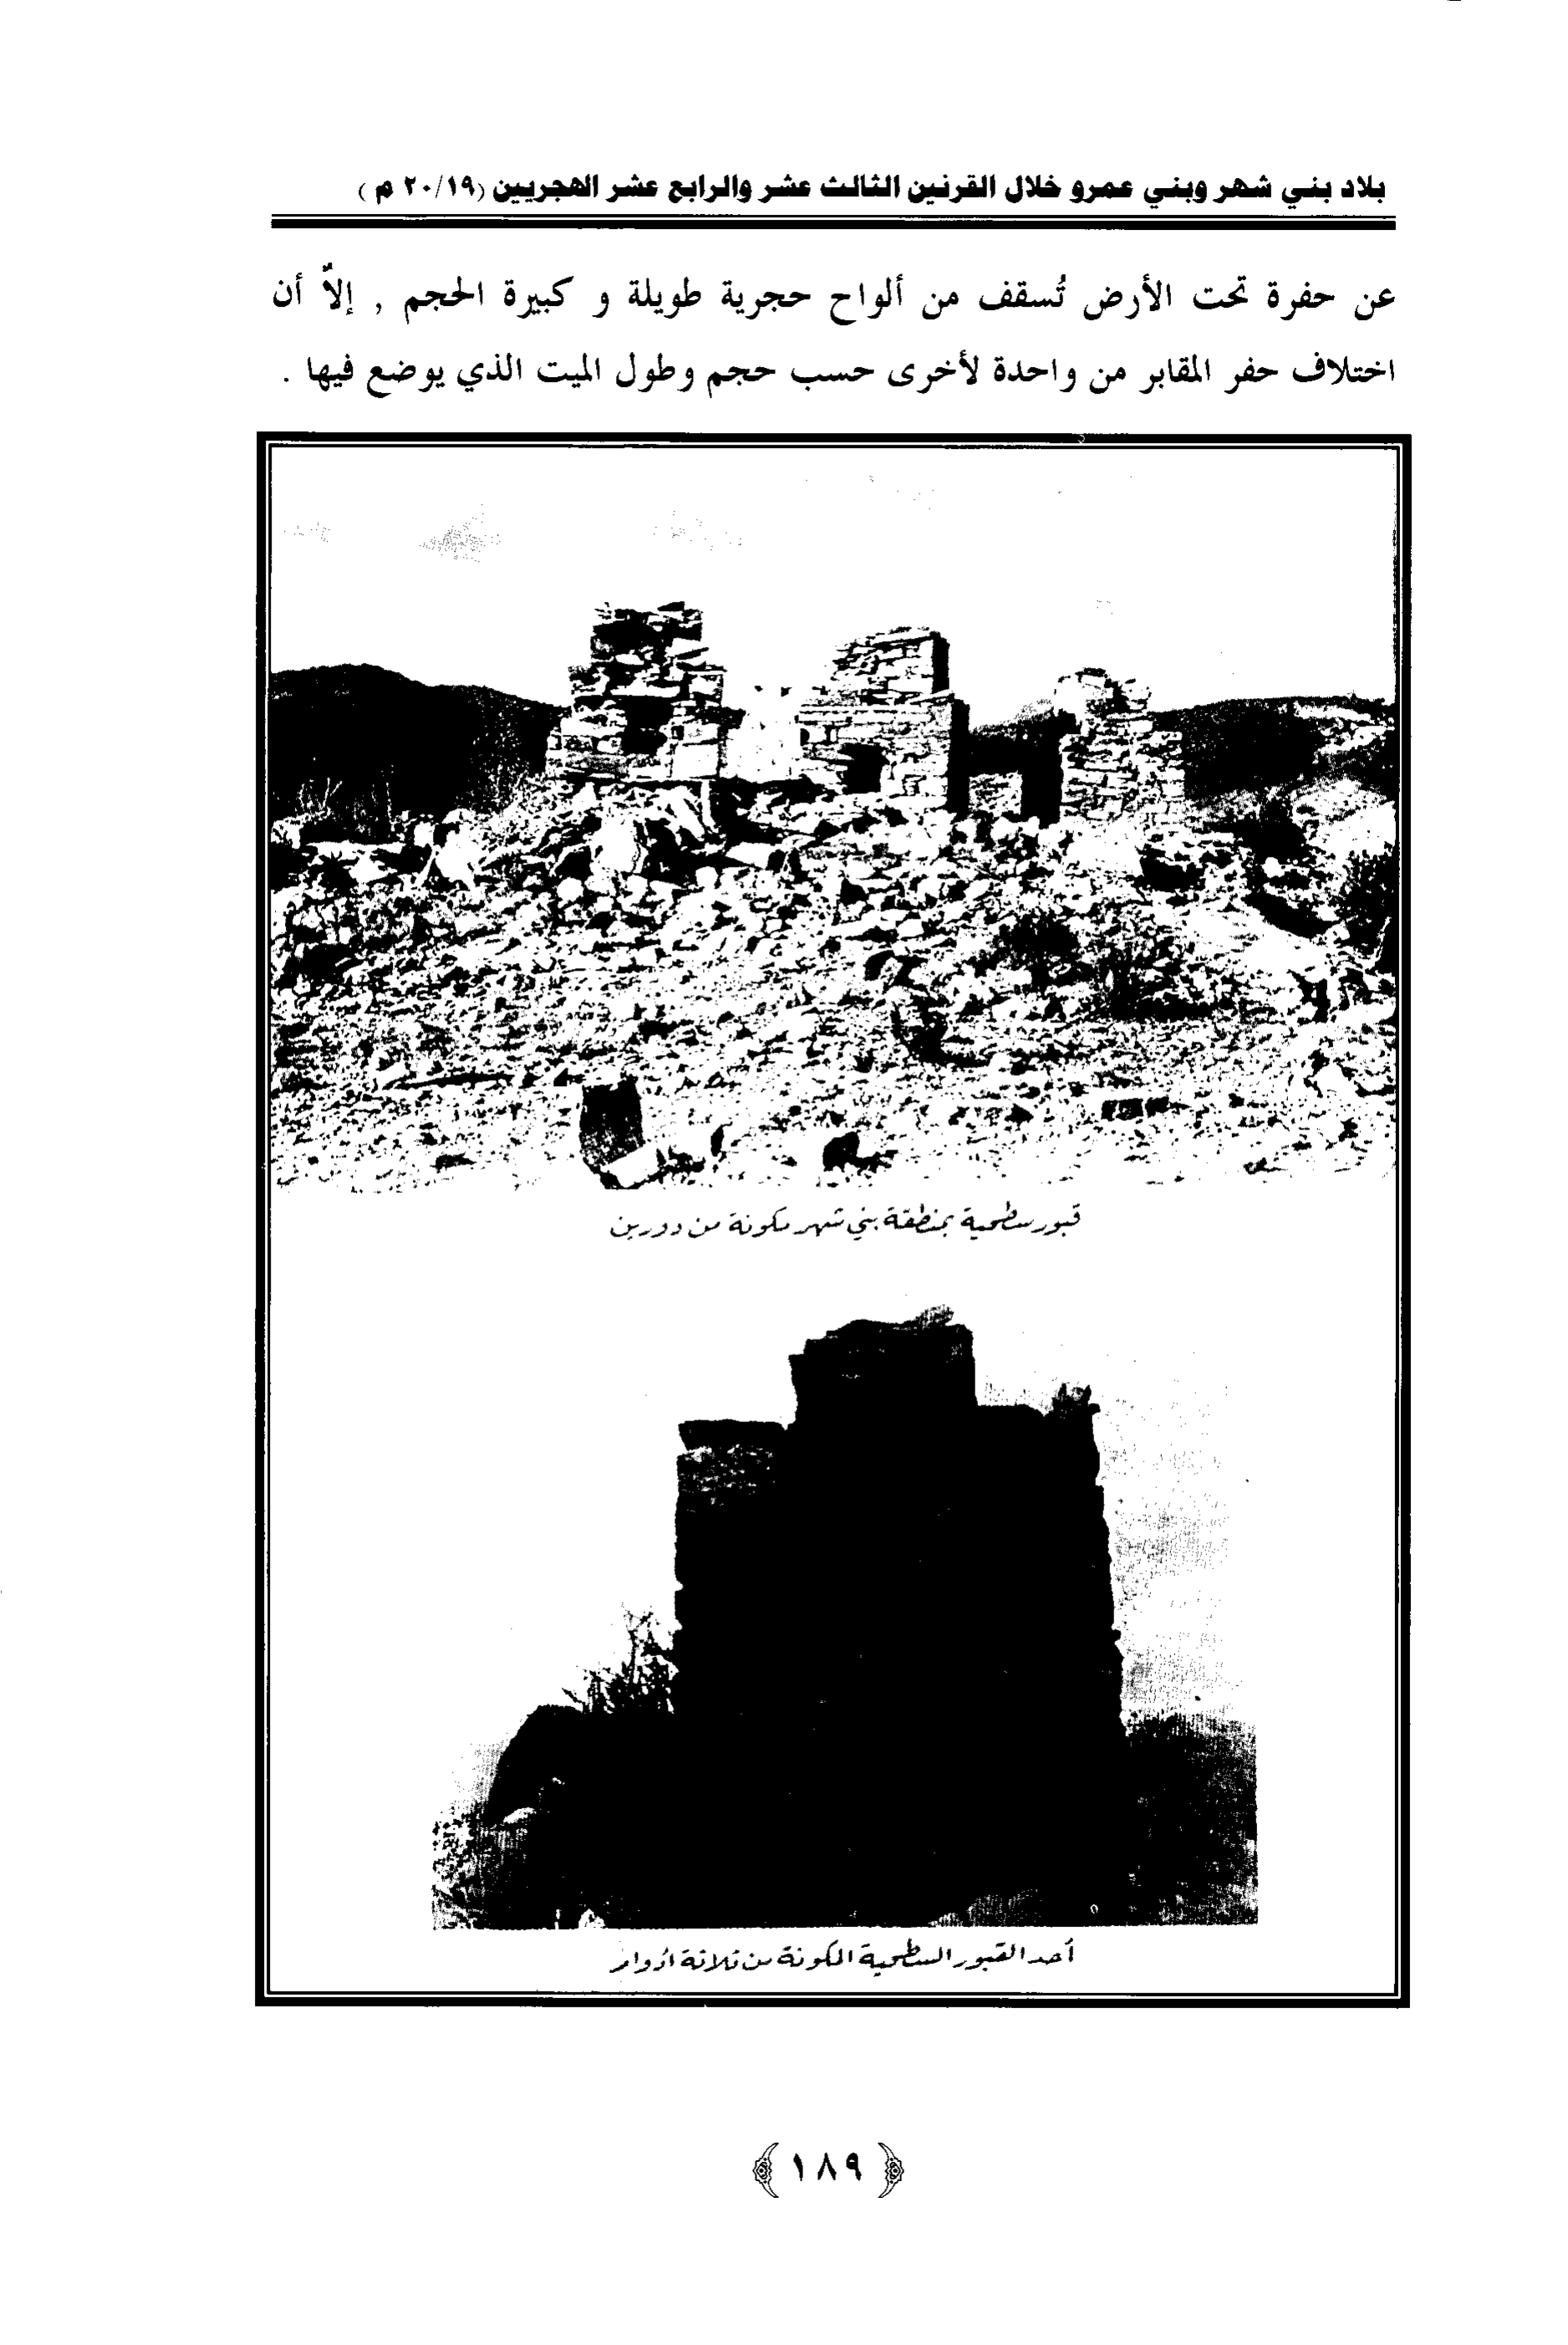 بلاد بني شهر وبني عمرو خلال القرنين الثالث عشر والرابع عشر الهجريين (٢٠/١٩ م )
عن حفرة تحت الأرض تُسقف من ألواح حجرية طويلة و كبيرة الحجم , إلاّ أن
اختلاف حفر المقابر من واحدة لأخرى حسب حجم وطول الميت الذي يوضع فيها .
قبور سطحية بمنطقة بني شهر مكونة من دورين
أحد القبور السطحية المكونة من ثلاثة أدوار
﴿ ١٨٩ ﴾